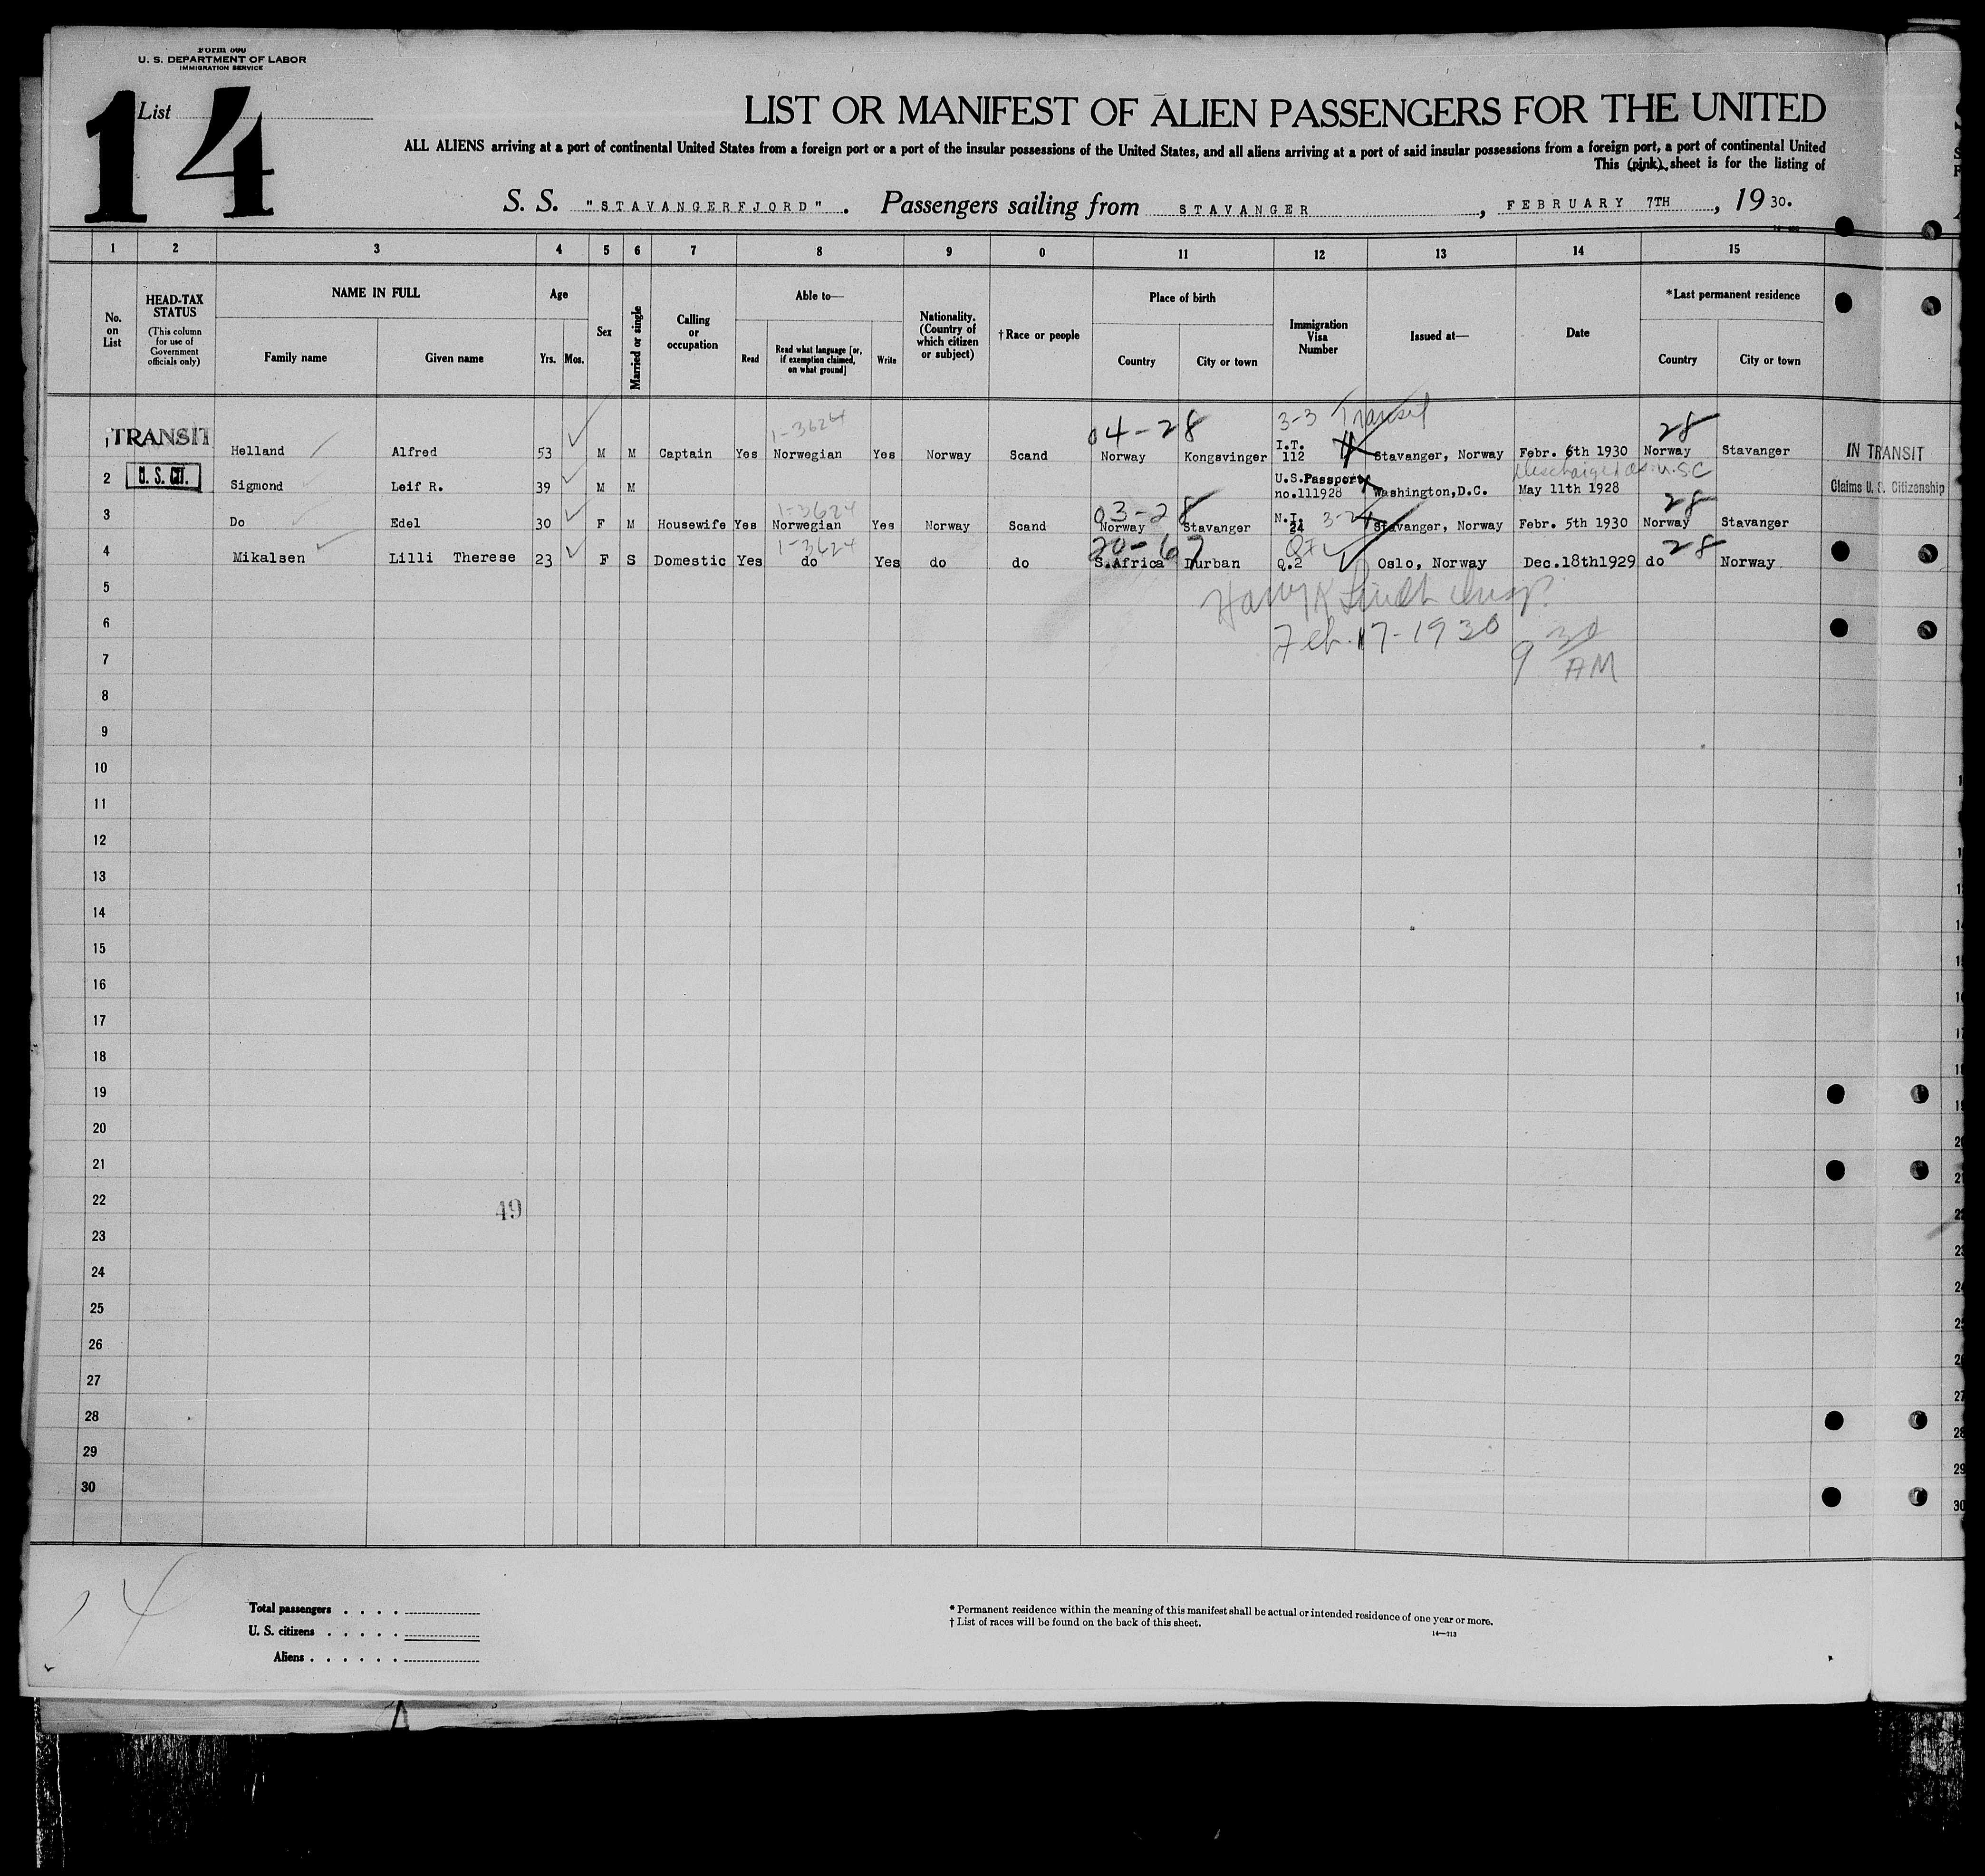 Form 500
U. S. DEPARTMENT OF LABOR
IMMIGRATION SERVICE
List 14
LIST OR MANIFEST OF ALIEN PASSENGERS FOR THE UNITED
ALL ALIENS arriving at a port of continental United States from a foreign port or a port of the insular possessions of the United States, and all aliens arriving at a port of said insular possessions from a foreign port, a port of continental United
This (pink) sheet is for the listing of
S. S. "STAVANGERFJORD". Passengers sailing from STAVANGER, FEBRUARY 7TH, 1930.
1 2 3 4 5 6 7 8 9 0 11 12 13 14 15
No. on List
HEAD-TAX STATUS
(This column for use of Government officials only)
NAME IN FULL
Family name Given name
Age
Yrs. Mos.
Sex
Married or single
Calling or occupation
Able to—
Read
Read what language [or, if exemption claimed, on what ground]
Write
Nationality. (Country of which citizen or subject)
†Race or people
Place of birth
Country City or town
Immigration Visa Number
Issued at—
Date
*Last permanent residence
Country City or town
1-3624 04-28 3-3 Transit 28
1 TRANSIT Helland Alfred 53 M M Captain Yes Norwegian Yes Norway Scand Norway Kongsvinger I.T. 112 Stavanger, Norway Febr. 6th 1930 Norway Stavanger IN TRANSIT
Discharged as U.S.C
2 U. S. CIT. Sigmond Leif R. 39 M M U.S.Passport no.111928 Washington,D.C. May 11th 1928 Claims U. S. Citizenship
1-3624 03-28 3-2 28
3 Do Edel 30 F M Housewife Yes Norwegian Yes Norway Scand Norway Stavanger N.I. 24 Stavanger, Norway Febr. 5th 1930 Norway Stavanger
1-3624 20-67 28
4 Mikalsen Lilli Therese 23 F S Domestic Yes do Yes do do S.Africa Durban Q.2 Oslo, Norway Dec.18th1929 do Norway
5
Harry K Lindt Insp.
6
Feb. 17-1930 9 30 AM
7
8
9
10
11
12
13
14
15
16
17
18
19
20
21
22
49
23
24
25
26
27
28
29
30
14
Total passengers
U. S. citizens
Aliens
* Permanent residence within the meaning of this manifest shall be actual or intended residence of one year or more.
† List of races will be found on the back of this sheet.
14—713